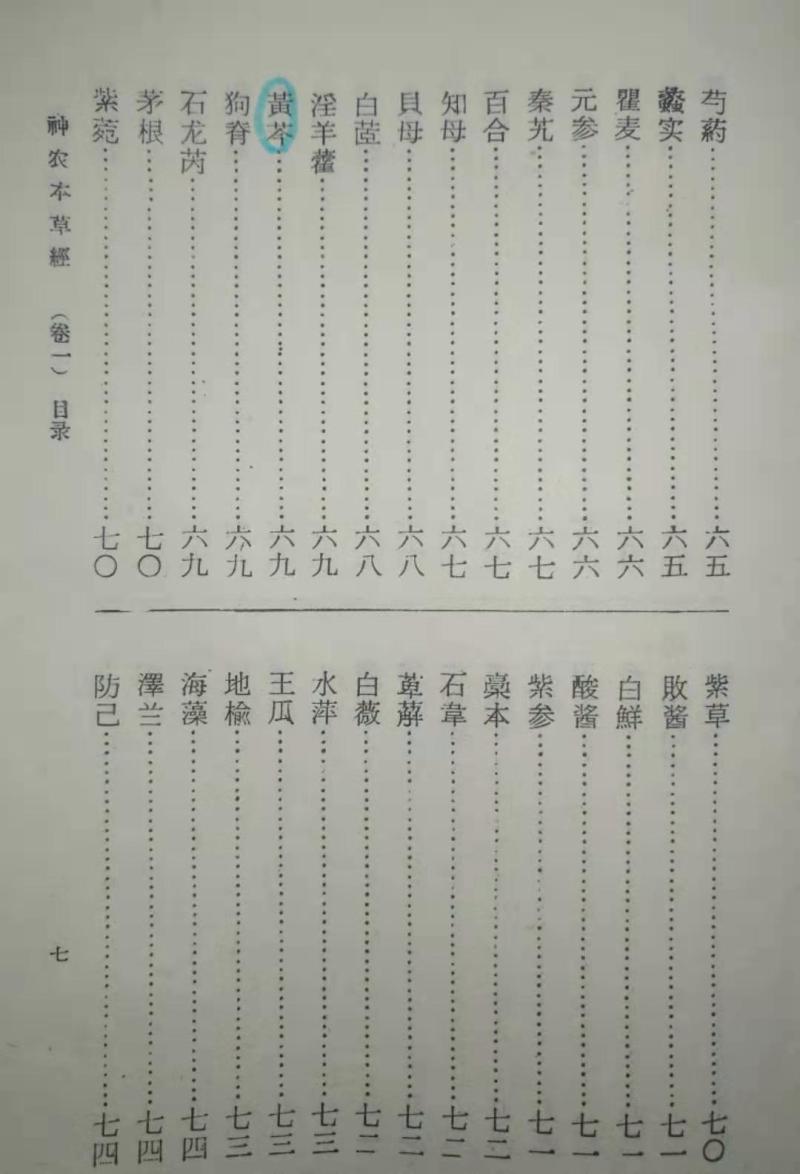 芍葯……六五
蠡实……六五
瞿麦……六六
元参……六六
秦艽……六七
百合……六七
知母……六七
貝母……六八
白茝……六八
淫羊藿……六九
黃芩……六九
狗脊……六九
石龙芮……六九
茅根……七〇
紫菀……七〇
紫草……七〇
敗酱……七一
白鮮……七一
酸酱……七一
紫参……七一
藁本……七二
石韋……七二
萆薢……七二
白薇……七二
水萍……七三
王瓜……七三
地榆……七三
海藻……七四
澤兰……七四
防己……七四
神农本草經 （卷一） 目录
七